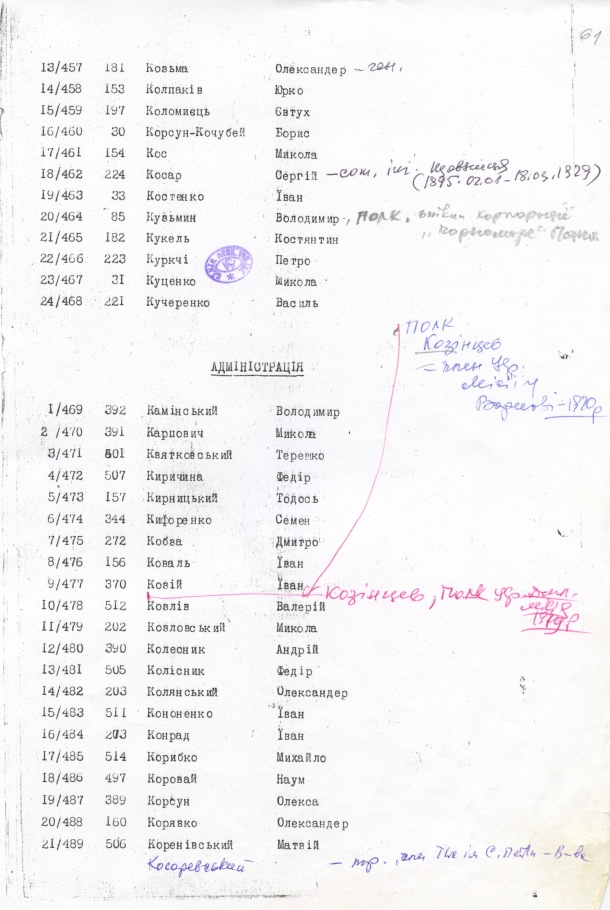 61
13/457 181 Козьма Олександер – ген.
14/458 153 Колпаків Юрко
15/459 197 Коломиєць Євтух
16/460 30 Корсун-Кочубей Борис
17/461 154 Кос Микола
18/462 224 Косар Сергій – сот,
(1895.02.01-18.03.1979)
19/463 33 Костенко Їван
20/464 85 Кузьмин Володимир, полк.
21/465 182 Кукель Костянтин
22/466 223 Куркчі Петро
23/467 31 Куценко Микола
24/468 221 Кучеренко Василь
ПОЛК
Козінцев
– член Укр.
Місії у
Варшаві – 1920р
АДМІНІСТРАЦІЯ
1/469 392 Камінський Володимир
2/470 391 Карпович Микола
3/471 501 Квятковський Терешко
4/472 507 Киричина Федір
5/473 157 Кирницький Тодось
6/474 344 Кифоренко Семен
7/475 272 Кобза Дмитро
8/476 156 Коваль Їван
9/477 370 Ковій Їван
Козінцев, Полк Укр.
10/478 512 Козлів Валерій
11/479 202 Козловський Микола
12/480 390 Колесник Андрій
13/481 505 Колісник Федір
14/482 203 Колянський Олександер
15/483 511 Кононенко Їван
16/484 273 Конрад Їван
17/485 514 Корибко Михайло
18/486 497 Коровай Наум
19/487 389 Корсун Олекса
20/488 160 Корявко Олександер
21/489 506 Коренівський Матвій
Косаревський – пор.